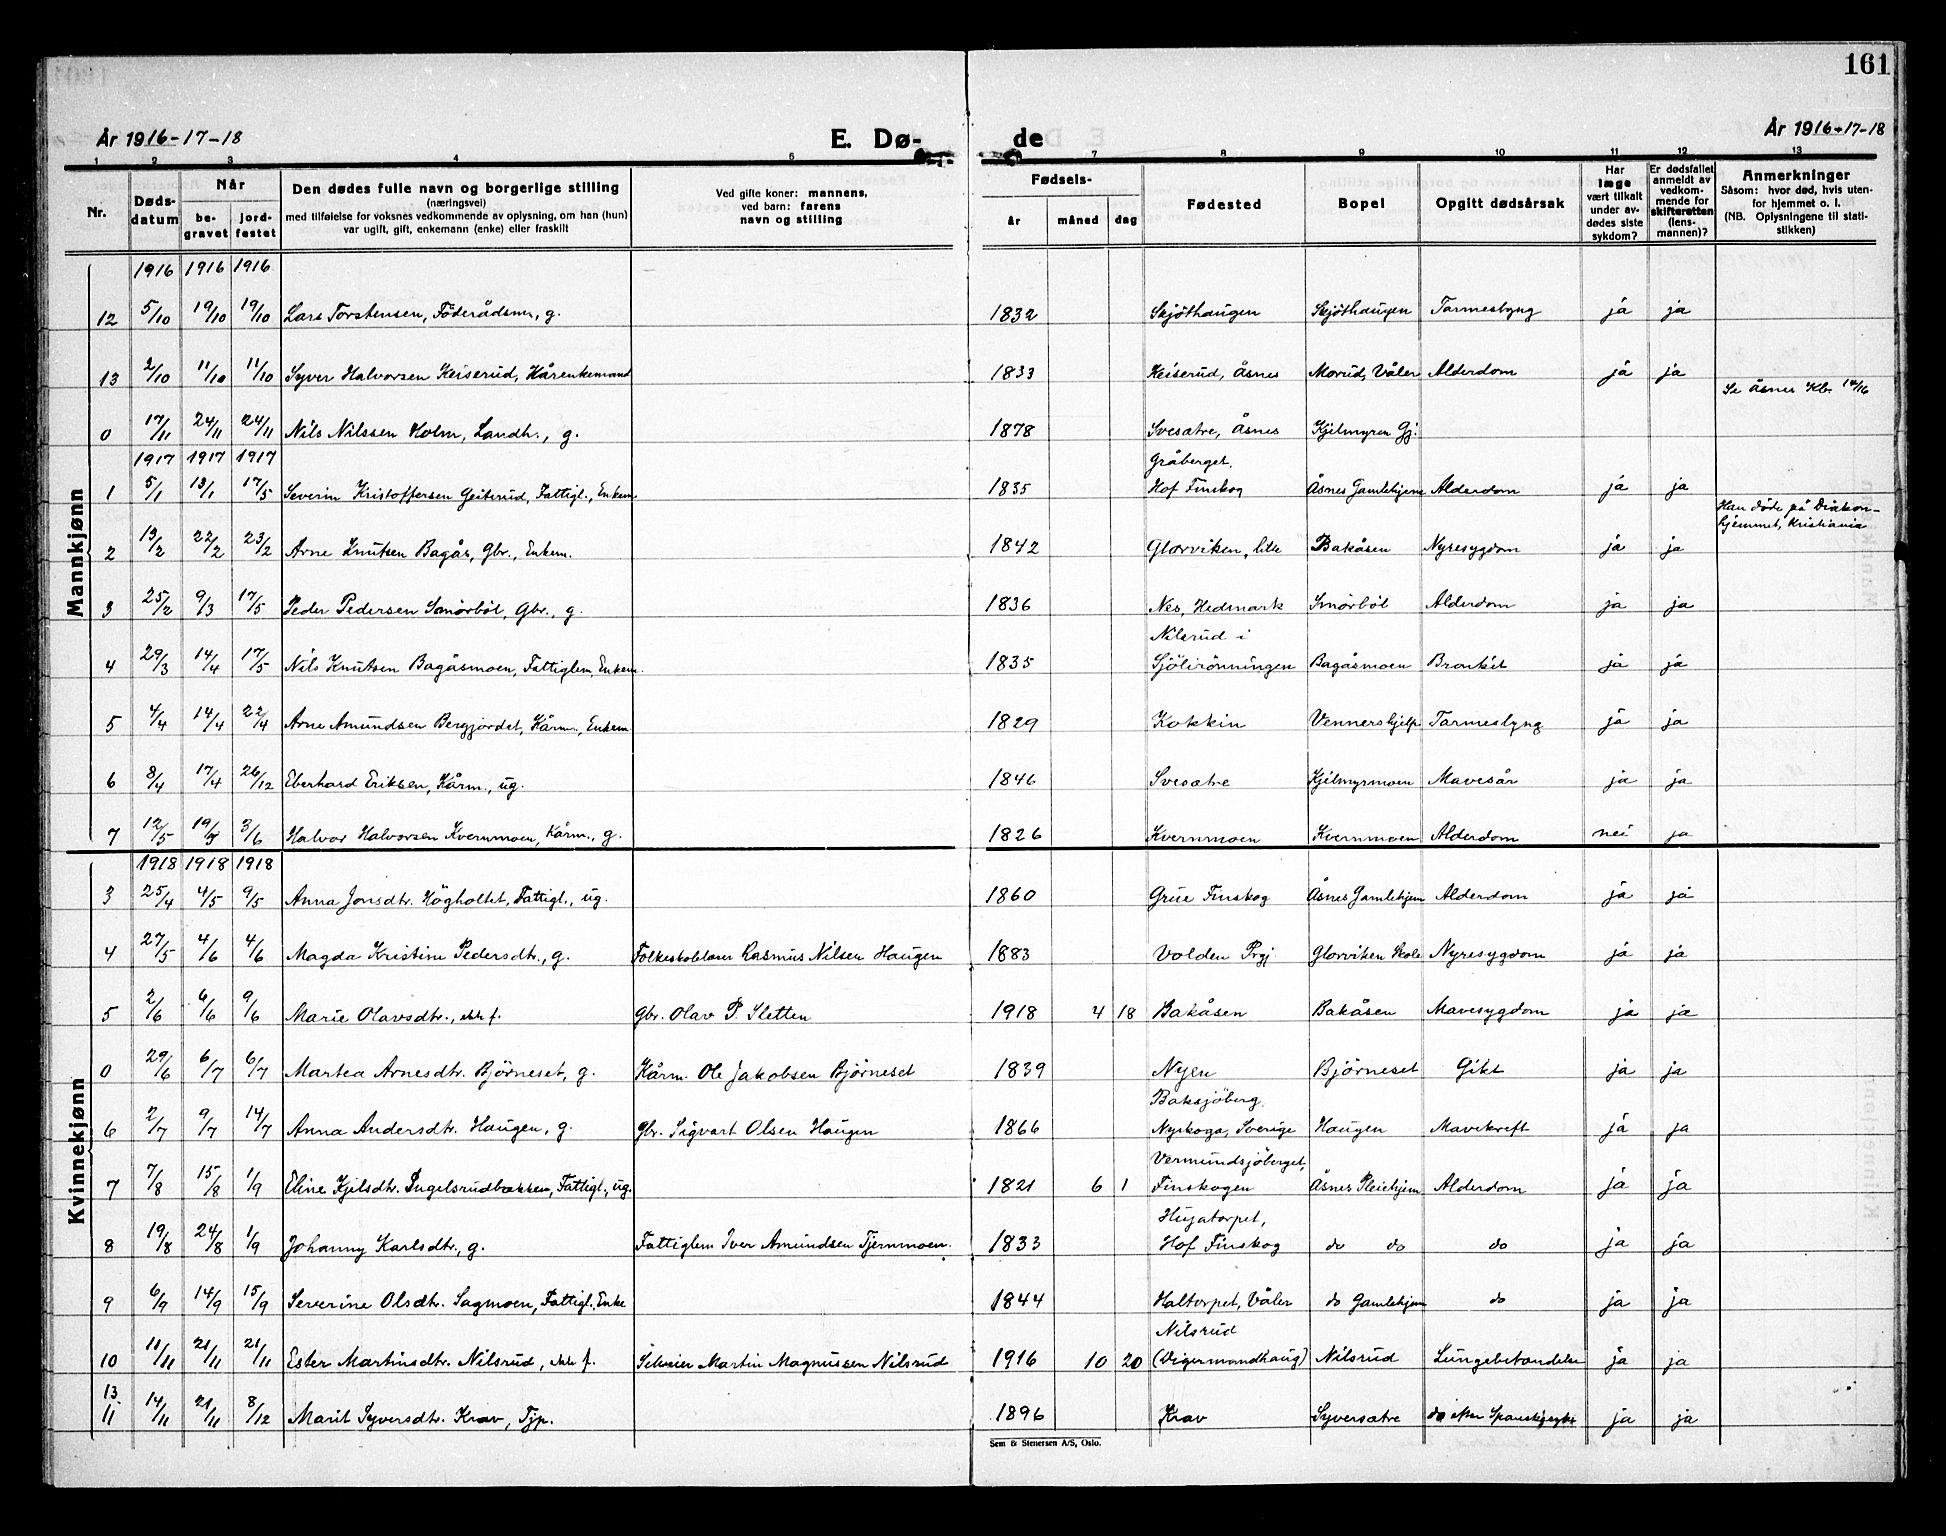 161
År 1916-17-18 E. Dø- de År 1916-17-18
1 2 3 4 5 7 8 9 10 11 12 13
Nr. Dødsdatum Når begravet jordfestet
Den dødes fulle navn og borgerlige stilling
(næringsvei)
med tilføielse for voksnes vedkommende av oplysning, om han (hun)
var ugift, gift, enkemann (enke) eller fraskilt
Ved gifte koner: mannens,
ved barn: farens
navn og stilling
Fødsels-
år måned dag
Fødested
Bopel
Opgitt dødsårsak
Har
læge
vært tilkalt
under av-
dødes siste
sykdom?
Er dødsfallet
anmeldt av
vedkom-
mende for
skifteretten
(lens-
mannen)?
Anmerkninger
Såsom: hvor død, hvis uten-
for hjemmet o. l.
(NB. Oplysningene til stati-
stikken)
Mannkjønn
1916 1916 1916
12 5/10 19/10 19/10 Lars Torstensen, Föderådsm, g. 1832 Skjöthaugen Skjöthaugen Tarmeslyng ja ja
13 2/10 11/10 11/10 Syver Halvorsen Keiserud, Kårenkemand 1833 Keiserud, Åsnes Morud, Våler Alderdom ja ja
Se Åsnes Kb. 14/16
0 17/11 24/11 24/11 Nils Nilssen Holm, Landh., g. 1878 Svesætre, Åsnes Kjelmyren Gj.
1917 1917 1917 Gråberget,
1 5/1 13/1 17/5 Severin Kristoffersen Geiterud, Fattigl., Enkem. 1835 Hof Finskog Åsnes Gamlehjem Alderdom ja ja
Han döde på Diakon-
hjemmet, Kristiania
2 13/2 22/2 23/2 Arne Knutsen Bagås, Gbr., Enkem. 1842 Glorviken, lille Bakåsen Nyresygdom ja ja
3 25/2 9/3 17/5 Peder Pedersen Smörböl, Gbr., g. 1836 Nes, Hedmark Smörböl Alderdom ja ja
Nilsrud i
4 29/3 14/4 17/5 Nils Knutsen Bagåsmoen, Fattiglem, Enkem. 1835 Sjölirönningen Bagåsmoen Bronkit ja ja
5 4/4 14/4 22/4 Arne Amundsen Bergjordet, Kårm., Enkem. 1829 Kokkin Vennershjelp Tarmeslyng ja ja
6 8/4 17/4 26/12 Eberhard Eriksen, Kårm., ug. 1846 Svesætre Kjelmyrmoen Mavesår ja ja
7 12/5 19/5 3/6 Halvor Halvorsen Kvernmoen, Kårm., g. 1826 Kvernmoen Kvernmoen Alderdom nei ja
Kvinnekjønn
1918 1918 1918
3 25/4 4/5 9/5 Anna Jonsdtr. Högholtet, Fattigl., ug. 1860 Grue Finskog Åsnes Gamlehjem Alderdom ja ja
4 27/5 4/6 4/6 Magda Kristine Pedersdtr., g. Folkeskolelærer Rasmus Nilsen Haugen 1883 Volden Prgj. Glorviken Skole Nyresygdom ja ja
5 2/6 6/6 9/6 Marie Olavsdtr., ekte f. Gbr. Olav P. Sletten 1918 4 18 Bakåsen Bakåsen Mavesygdom ja ja
0 29/6 6/7 6/7 Martea Arnesdtr. Björneset, g. Kårm. Ole Jakobsen Björneset 1839 Nyen Björneset Gikt ja ja
Baksjöberg,
6 2/7 9/7 14/7 Anna Andersdtr. Haugen, g. Gbr. Sigvart Olsen Haugen 1866 Nyskoga, Sverige Haugen Mavekreft ja ja
Vermundsjöberget,
7 7/8 15/8 1/9 Eline Kjelsdtr. Ingelsrudbakken, Fattigl., ug. 1821 6 1 Finskogen Åsnes Pleiehjem Alderdom ja ja
Hujatorpet,
8 19/8 24/8 1/9 Johanny Karlsdtr., g. Fattiglem Iver Amundsen Tjernmoen. 1833 Hof Finskog do do do ja ja
9 6/9 14/9 15/9 Severine Olsdtr. Sagmoen, Fattigl., Enke 1844 Haltorpet, Våler do Gamlehjem do ja ja
Nilsrud
10 11/11 21/11 21/11 Ester Martinsdtr. Nilsrud, ekte f. Selveier Martin Magnussen Nilsrud 1916 10 20 (Digermandhaug) Nilsrud Lungebetændelse ja ja
13
11 14/11 21/11 8/12 Marit Syversdtr. Krav, Tjp. 1896 Krav Syversætre do efter Spanskesyke ja ja
Sem & Stenersen A/S, Oslo.